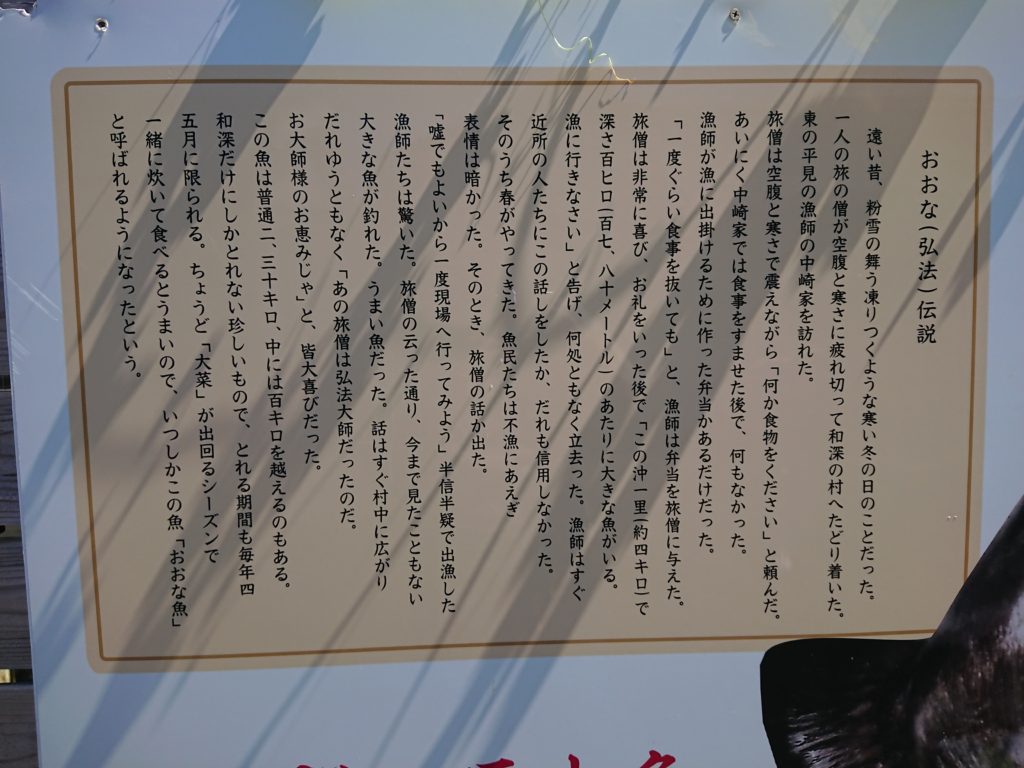 おおな(弘法)伝説
遠い昔、粉雪の舞う凍りつくような寒い冬の日のことだった。
一人の旅の僧が空腹と寒さに疲れ切って和深の村へたどり着いた。
東の平見の漁師の中崎家を訪れた。
旅僧は空腹と寒さで震えながら「何か食物をください」と頼んだ。
あいにく中崎家では食事をすませた後で、何もなかった。
漁師が漁に出掛けるために作った弁当かあるだけだった。
「一度ぐらい食事を抜いても」と、漁師は弁当を旅僧に与えた。
旅僧は非常に喜び、お礼をいった後で「この沖一里(約四キロ)で
深さ百ヒロ(百七、八十メートル)のあたりに大きな魚がいる。
漁に行きなさい」と告げ、何処ともなく立去った。漁師はすぐ
近所の人たちにこの話しをしたか、だれも信用しなかった。
そのうち春がやってきた。魚民たちは不漁にあえぎ
表情は暗かった。そのとき、旅僧の話か出た。
「嘘でもよいから一度現場へ行ってみよう」半信半疑で出漁した
漁師たちは驚いた。旅僧の云った通り、今まで見たこともない
大きな魚が釣れた。うまい魚だった。話はすぐ村中に広がり
だれゆうともなく「あの旅僧は弘法大師だったのだ。
お大師様のお恵みじゃ」と、皆大喜びだった。
この魚は普通二、三十キロ、中には百キロを越えるのもある。
和深だけにしかとれない珍しいもので、とれる期間も毎年四
五月に限られる。ちょうど「大菜」が出回るシーズンで
一緒に炊いて食べるとうまいので、いつしかこの魚「おおな魚」
と呼ばれるようになったという。